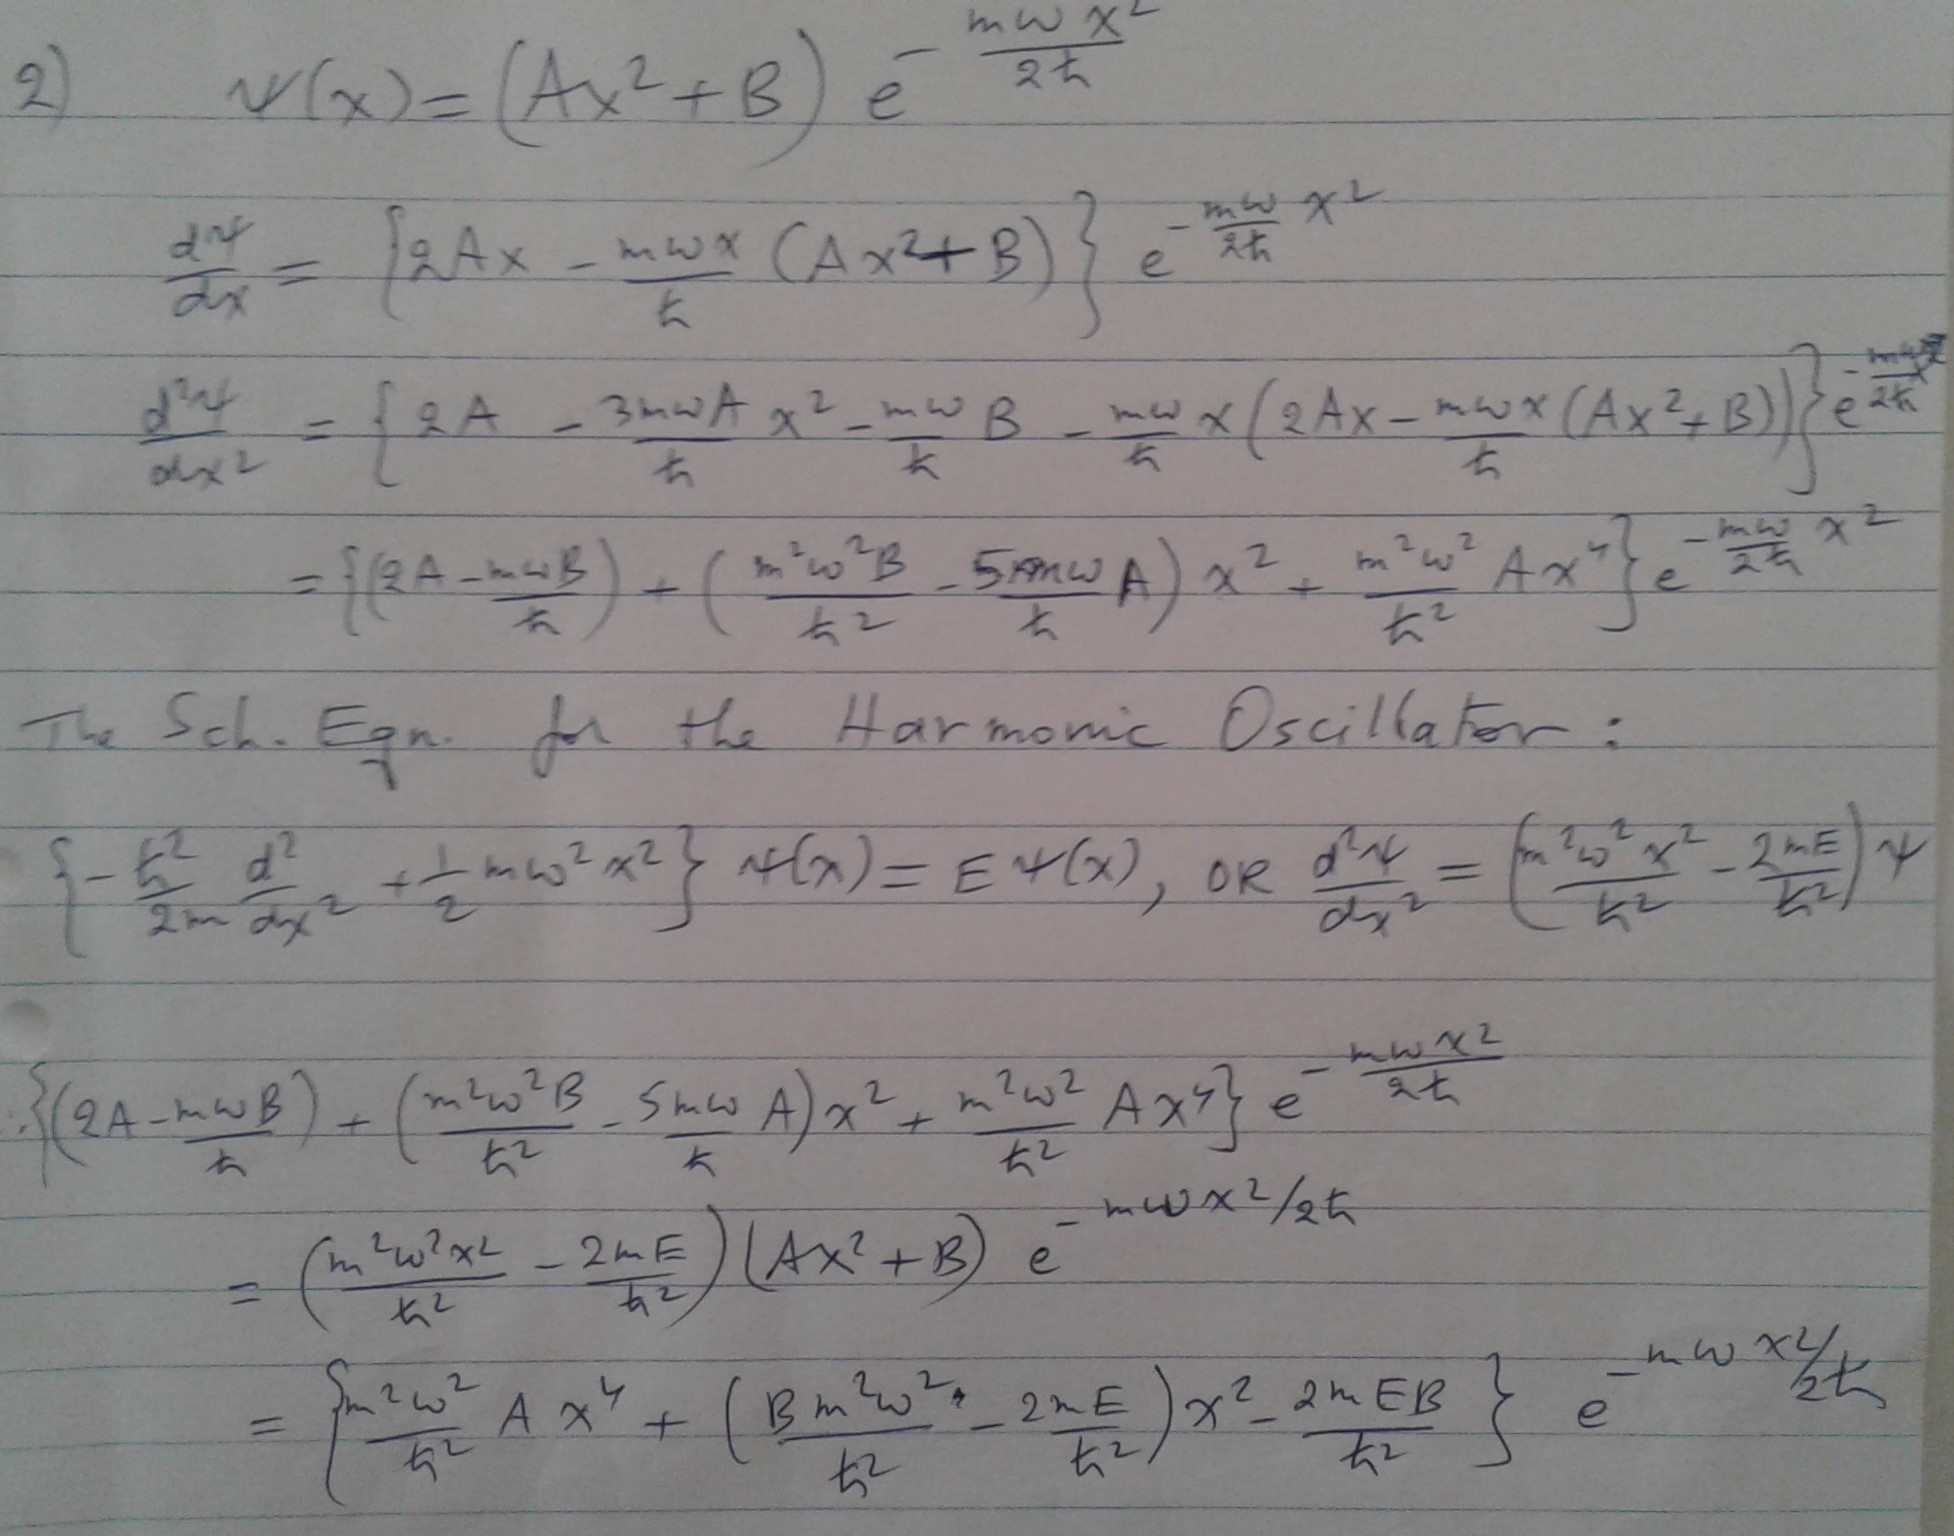 2) ψ(x) = (Ax² + B) e^{-mωx²/2ħ}
dψ/dx = {2Ax - mωx/ħ (Ax² + B)} e^{-mω/2ħ x²}
d²ψ/dx² = {2A - 3mωA/ħ x² - mω/ħ B - mω/ħ x (2Ax - mωx/ħ (Ax² + B))} e^{-mωx²/2ħ}
= {(2A - mωB/ħ) + (m²ω²B/ħ² - 5mω/ħ A) x² + m²ω²/ħ² Ax⁴} e^{-mω/2ħ x²}
The Sch. Eqn. for the Harmonic Oscillator :
{-ħ²/2m d²/dx² + 1/2 mω²x²} ψ(x) = E ψ(x), OR d²ψ/dx² = (m²ω²x²/ħ² - 2mE/ħ²) ψ
∴ {(2A - mωB/ħ) + (m²ω²B/ħ² - 5mω/ħ A) x² + m²ω²/ħ² Ax⁴} e^{-mωx²/2ħ}
= (m²ω²x²/ħ² - 2mE/ħ²) (Ax² + B) e^{-mωx²/2ħ}
= {m²ω²/ħ² A x⁴ + (Bm²ω²/ħ² - 2mE/ħ²) x² - 2mEB/ħ²} e^{-mωx²/2ħ}